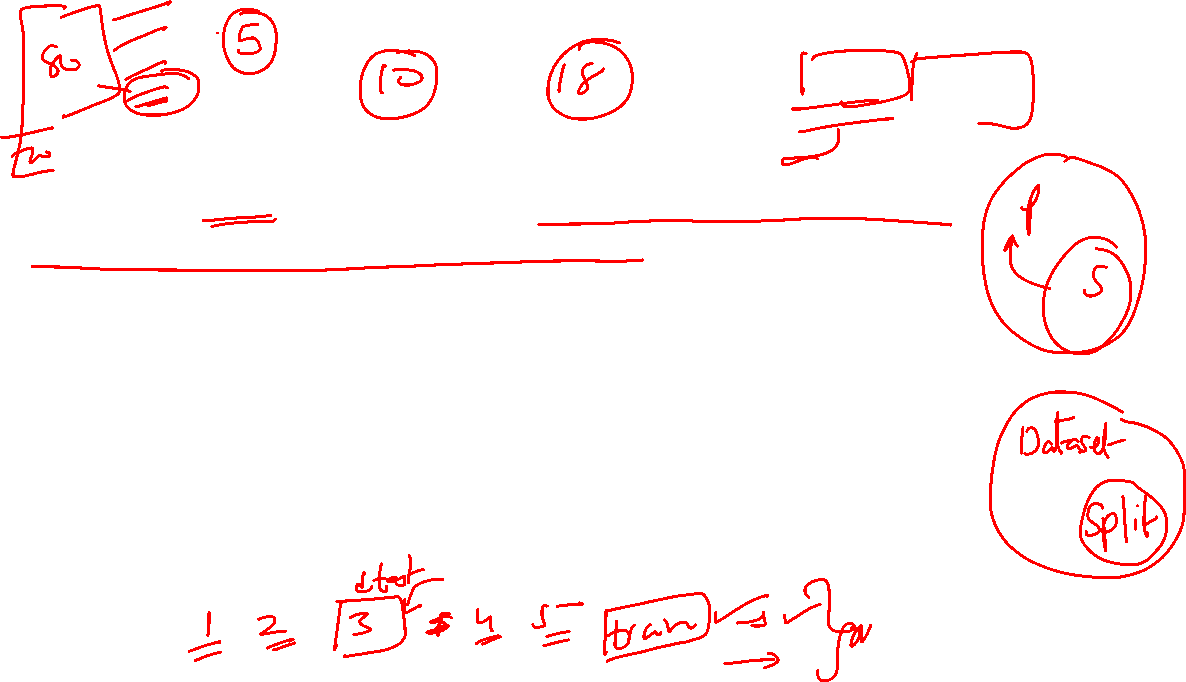 80
5
10
18
20
P
S
Dataset
Split
test
1 2 3 4 5 train